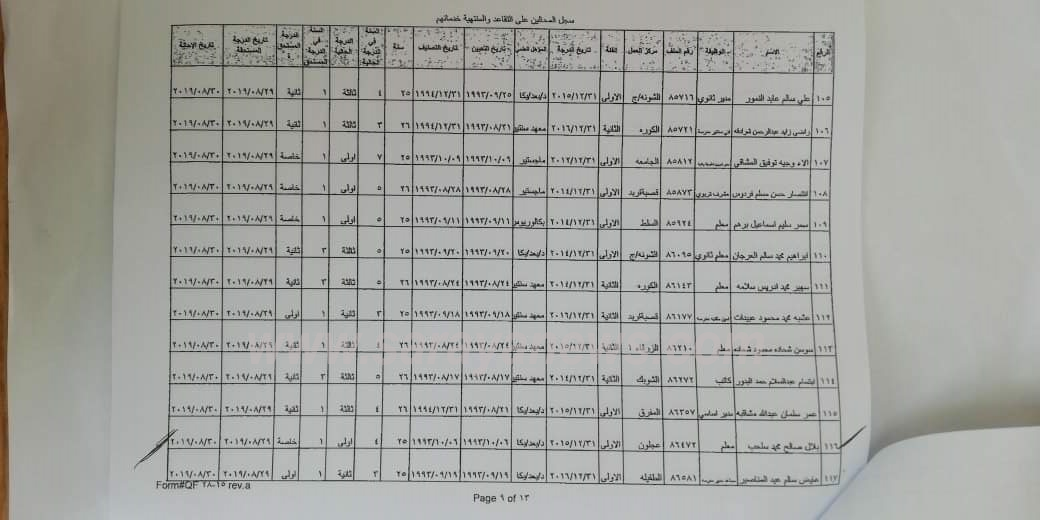 سجل المحالين على التقاعد والمنتهية خدماتهم
الرقم الاسم الوظيفة رقم الملف مركز العمل الفئة تاريخ الدرجة المؤهل العلمي تاريخ التعيين تاريخ التصنيف سنة السنة في الدرجة الحالية الدرجة الحالية السنة في الدرجة المستحق الدرجة المستحق تاريخ الدرجة المستحقة تاريخ الاحالة
١٠٥ علي سالم عايد النمور مدير ثانوي ٨٥٧١٦ الشونه/ج الاولى ٢٠١٥/١٢/٣١ د/بعد/بكا ١٩٩٣/٠٩/٢٥ ١٩٩٤/١٢/٣١ ٢٥ ٤ ثالثة ١ ثانية ٢٠١٩/٠٨/٢٩ ٢٠١٩/٠٨/٣٠
١٠٦ راضي زايد عبدالرحمن ٨٥٧٢١ الكوره الثانية ٢٠١٦/١٢/٣١ معهد سنتين ١٩٩٣/٠٨/٢١ ١٩٩٤/١٢/٣١ ٢٦ ٣ ثالثة ١ ثانية ٢٠١٩/٠٨/٢٩ ٢٠١٩/٠٨/٣٠
١٠٧ الاء وجيه توفيق المشاقي ٨٥٨١٢ الجامعه الاولى ٢٠١٢/١٢/٣١ ماجستير ١٩٩٣/١٠/٠٦ ١٩٩٣/١٠/٠٩ ٢٥ ٧ اولى ١ خاصة ٢٠١٩/٠٨/٢٩ ٢٠١٩/٠٨/٣٠
١٠٨ انتصار حسن مسلم فردوس مشرف تربوي ٨٥٨٧٣ قصبةاربد الاولى ٢٠١٤/١٢/٣١ ماجستير ١٩٩٣/٠٨/٢٨ ١٩٩٣/٠٨/٢٨ ٢٦ ٥ اولى ١ خاصة ٢٠١٩/٠٨/٢٩ ٢٠١٩/٠٨/٣٠
١٠٩ سمر سليم اسماعيل برهم معلم ٨٥٩٢٤ السلط الاولى ٢٠١٤/١٢/٣١ بكالوريوس ١٩٩٣/٠٩/١١ ١٩٩٣/٠٩/١١ ٢٥ ٥ اولى ١ خاصة ٢٠١٩/٠٨/٢٩ ٢٠١٩/٠٨/٣٠
١١٠ ابراهيم محمد سالم العرجان معلم ثانوي ٨٦٠٩٥ الشونه/ج الاولى ٢٠١٤/١٢/٣١ د/بعد/بكا ١٩٩٣/٠٩/٢٠ ١٩٩٣/٠٩/٢٠ ٢٥ ٥ ثالثة ٣ ثانية ٢٠١٩/٠٨/٢٩ ٢٠١٩/٠٨/٣٠
١١١ سهير محمد ادريس سلامه معلم ٨٦١٤٣ الكوره الثانية ٢٠١٤/١٢/٣١ معهد سنتين ١٩٩٣/٠٨/٢٤ ١٩٩٣/٠٨/٢٤ ٢٦ ٥ ثالثة ٣ ثانية ٢٠١٩/٠٨/٢٩ ٢٠١٩/٠٨/٣٠
١١٢ محمد محمود عبيدات ٨٦١٧٧ قصبةاربد الثانية ٢٠١٦/١٢/٣١ معهد سنتين ١٩٩٣/٠٩/١٨ ١٩٩٣/٠٩/١٨ ٢٥ ٣ ثانية ١ اولى ٢٠١٩/٠٨/٢٩ ٢٠١٩/٠٨/٣٠
١١٣ سوسن شحاده محمود شحاده معلم ٨٦٢١٠ الزرقاء ١ الثانية ٢٠١٥/١٢/٣١ معهد سنتين ١٩٩٣/٠٨/٢٤ ١٩٩٣/٠٨/٢٤ ٢٦ ٤ ثالثة ١ ثانية ٢٠١٩/٠٨/٢٩ ٢٠١٩/٠٨/٣٠
١١٤ ابتسام عبدالسلام حمد البدور كاتب ٨٦٢٧٢ الشوبك الثانية ٢٠١٤/١٢/٣١ معهد سنتين ١٩٩٣/٠٨/١٧ ١٩٩٣/٠٨/١٧ ٢٦ ٥ ثالثة ٣ ثانية ٢٠١٩/٠٨/٢٩ ٢٠١٩/٠٨/٣٠
١١٥ عمر سلمان عبدالله مشاقبه مدير اساسي ٨٦٣٥٧ المفرق الاولى ٢٠١٥/١٢/٣١ د/بعد/بكا ١٩٩٣/٠٨/٢١ ١٩٩٤/١٢/٣١ ٢٦ ٤ ثالثة ١ ثانية ٢٠١٩/٠٨/٢٩ ٢٠١٩/٠٨/٣٠
١١٦ بلال صالح محمد سلحب معلم ٨٦٤٧٢ عجلون الاولى ٢٠١٥/١٢/٣١ د/بعد/بكا ١٩٩٣/١٠/٠٦ ١٩٩٣/١٠/٠٦ ٢٥ ٤ اولى ١ خاصة ٢٠١٩/٠٨/٢٩ ٢٠١٩/٠٨/٣٠
١١٧ عايض سالم عيد المناصير ٨٦٥٨١ الطفيله الاولى ٢٠١٦/١٢/٣١ د/بعد/بكا ١٩٩٣/٠٩/١٩ ١٩٩٣/٠٩/١٩ ٢٥ ٣ ثانية ١ اولى ٢٠١٩/٠٨/٢٩ ٢٠١٩/٠٨/٣٠
Form#QF ٢٨-١٥ rev.a
Page ٩ of ١٣